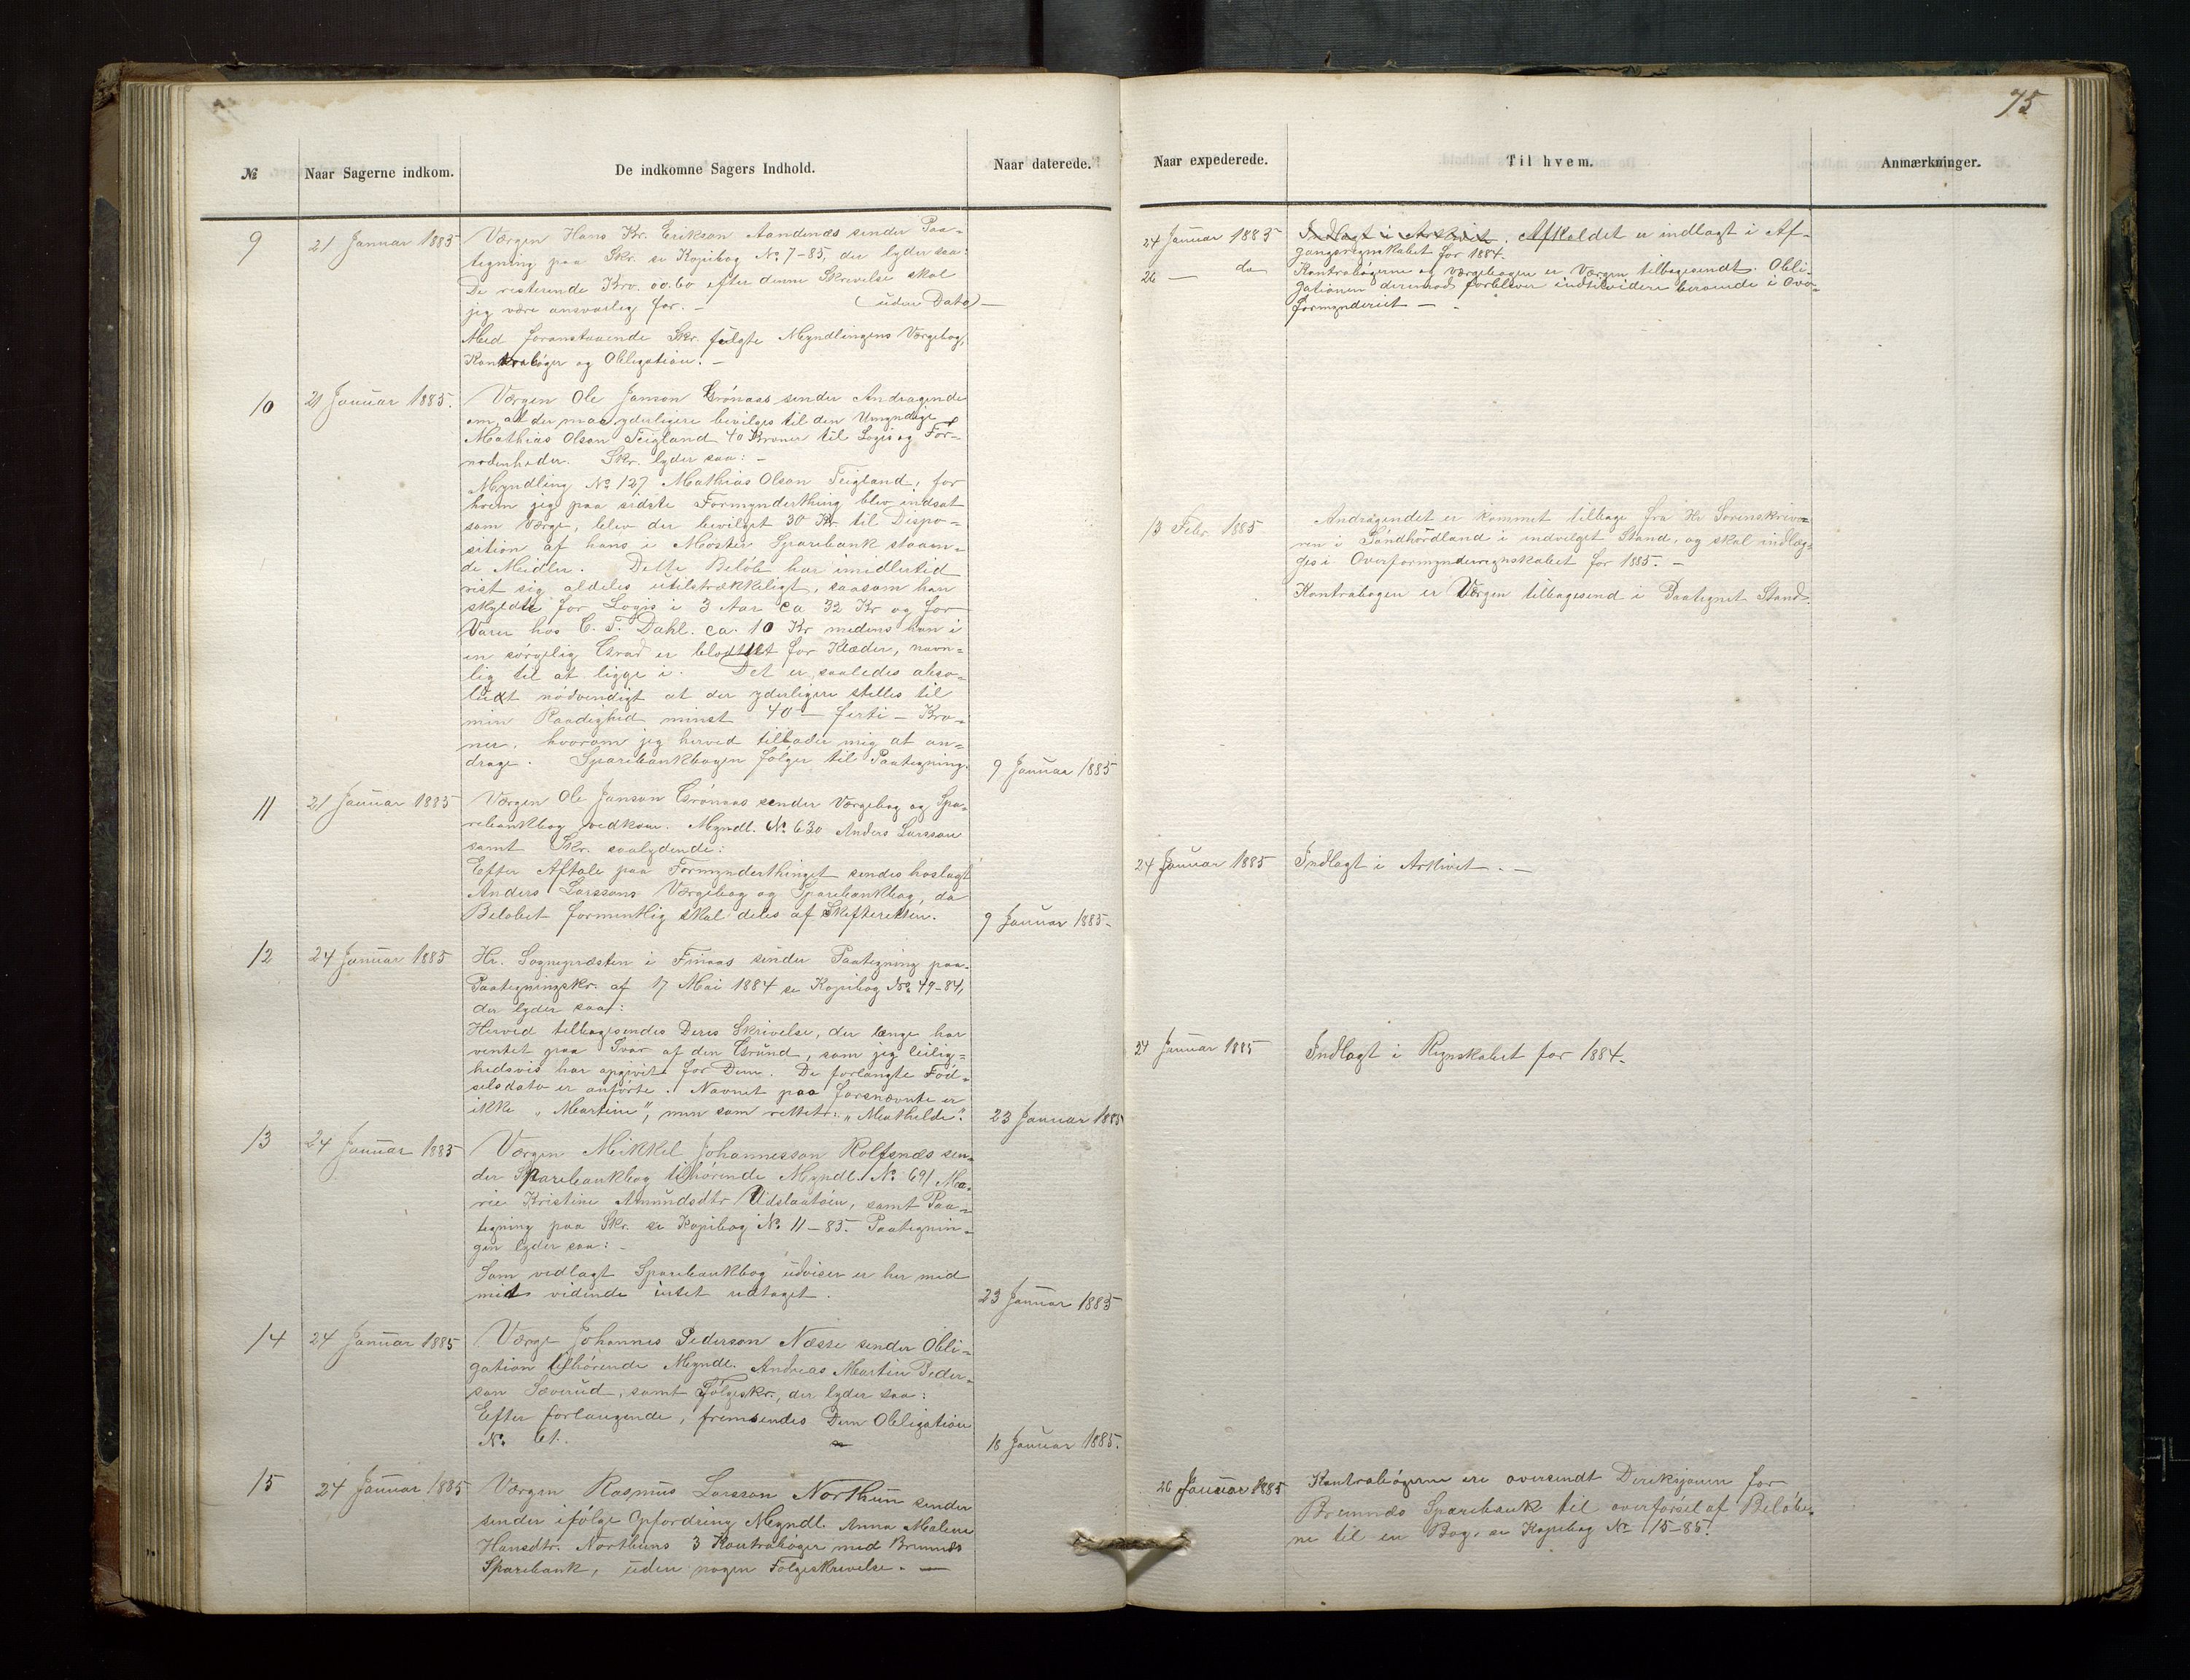 75
№ Naar Sagerne indkom. De indkomne Sagers Indhold. Naar daterede.
9 21 Januar 1885 Værgen Hans Kr. Erikson Aandenæs sender Paa-
tegning paa Skr. se Kopibog No. 7-85, der lyder saa:
De resterende Kro. 00.60 efter denne Skrivelse skal
jeg være ansvarlig for. — (uden Dato) —
Med foranstaaende Skr. fulgte Myndlingens Værgebog,
Kontrabøger og Obligation. —
10 21 Januar 1885. Værgen Ole Janson Grønaas sender Andragende
om, at der maa yderligere bevilges til den Umyndige
Mathias Olson Teigland 40 Kroner til Logis og For-
nødenheder. Skr. lyder saa: —
Myndling No 127 Mathias Olson Teigland, for
hvem jeg paa sidste Formynderthing blev indsat
som Værge, blev der bevilget 30 Kr. til Dispo-
sition af hans i Moster Sparebank staaen-
de Midler. Dette Beløb har imidlertid
vist sig aldeles utilstrækkeligt, saasom han
skyldte for Logis i 3 Aar ca 32 Kr og for
Varer hos C. T. Dahl. ca. 10 Kr medens han i
en sørgelig Grad er blottet for Klæder, navn-
lig til at ligge i. Det er saaledes abso-
lut nødvendigt at der yderligere stilles til
min Raadighed minst 40 — førti — Kro-
ner, hvorom jeg herved tillader mig at an-
drage. Sparebankbogen følger til Paategning. 9 Januar 1885
11 21 Januar 1885 Værgen Ole Janson Grønaas sender Værgebog og Spa-
rebankbog vedkom. Myndl. No. 630 Anders Larsson
samt Skr. saalydende:
Efter Aftale paa Formynderthinget sendes hoslagt
Anders Larssons Værgebog og Sparebankbog, da
Beløbet formentlig skal deles af Skifteretten. 9 Januar 1885.
12 24 Januar 1885 Hr. Sognepræsten i Finaas sender Paategning paa
Paategningskr. af 17 Mai 1884 se Kopibog No. 49-84,
der lyder saa:
Herved tilbagesendes Deres Skrivelse, der længe har
ventet paa Svar af den Grund, som jeg leilig-
hedsvis har opgivet for Dem. De forlangte Fød-
selsdato er anførte. Navnet paa førsnævnte er
ikke „Martine", men som rettet: „Mathilde". 23 Januar 1885
13 24 Januar 1885 Værgen Mikkel Johannesson Rolfsnæs sen-
der Sparebankbog tilhørende Myndl. No. 691 Ma-
rie Kristine Amundsdtr Udslaatøen, samt Paa-
tegning paa Skr. se Kopibog No. 11-85. Paategnin-
gen lyder saa: —
Som vedlagt Sparebankbog udviser er her med
mit vidende intet udtaget. 23 Januar 1885
14 24 Januar 1885 Værge Johannes Pederson Næsse sender Obli-
gation tilhørende Myndl. Andreas Martin Peder-
son Sæverud, samt Følgeskr., der lyder saa:
Efter forlangende, fremsendes Dem Obligation
No. 61. 18 Januar 1885.
15 24 Januar 1885 Værgen Rasmus Larsson Northun sender
sender ifølge Opfordring Myndl. Anna Malene
Hansdtr. Northuns 3 Kontrabøger med Bremnæs
Sparebank, uden nogen Følgeskrivelse. —
Naar expederede. Til hvem. Anmærkninger.
24 Januar 1885 Indlagt i Arkivet. Afkaldet er indlagt i Af-
gangsregnskabet for 1884.
26 — do Kontrabøgerne og værgebogen er Værgen tilbagesendt. Obli-
gationen derimod forbliver indtilvidere beroende i Over-
formynderiet —
13 Febr 1885 Andragendet er kommet tilbage fra Hr Sorenskrive-
ren i Søndhordland i indvilget Stand, og skal indlæg-
ges i Overformynderregnskabet for 1885. —
Kontrabogen er Værgen tilbagesend i Paategnet Stand.
24 Januar 1885 Indlagt i Arkivet. —
24 Januar 1885 Indlagt i Regnskabet for 1884.
26 Januar 1885 Kontrabøgerne ere oversendt Direksjonen for
Bremnæs Sparebank til overførsel af Beløbe-
ne til en Bog. se Kopibog No 115-85.